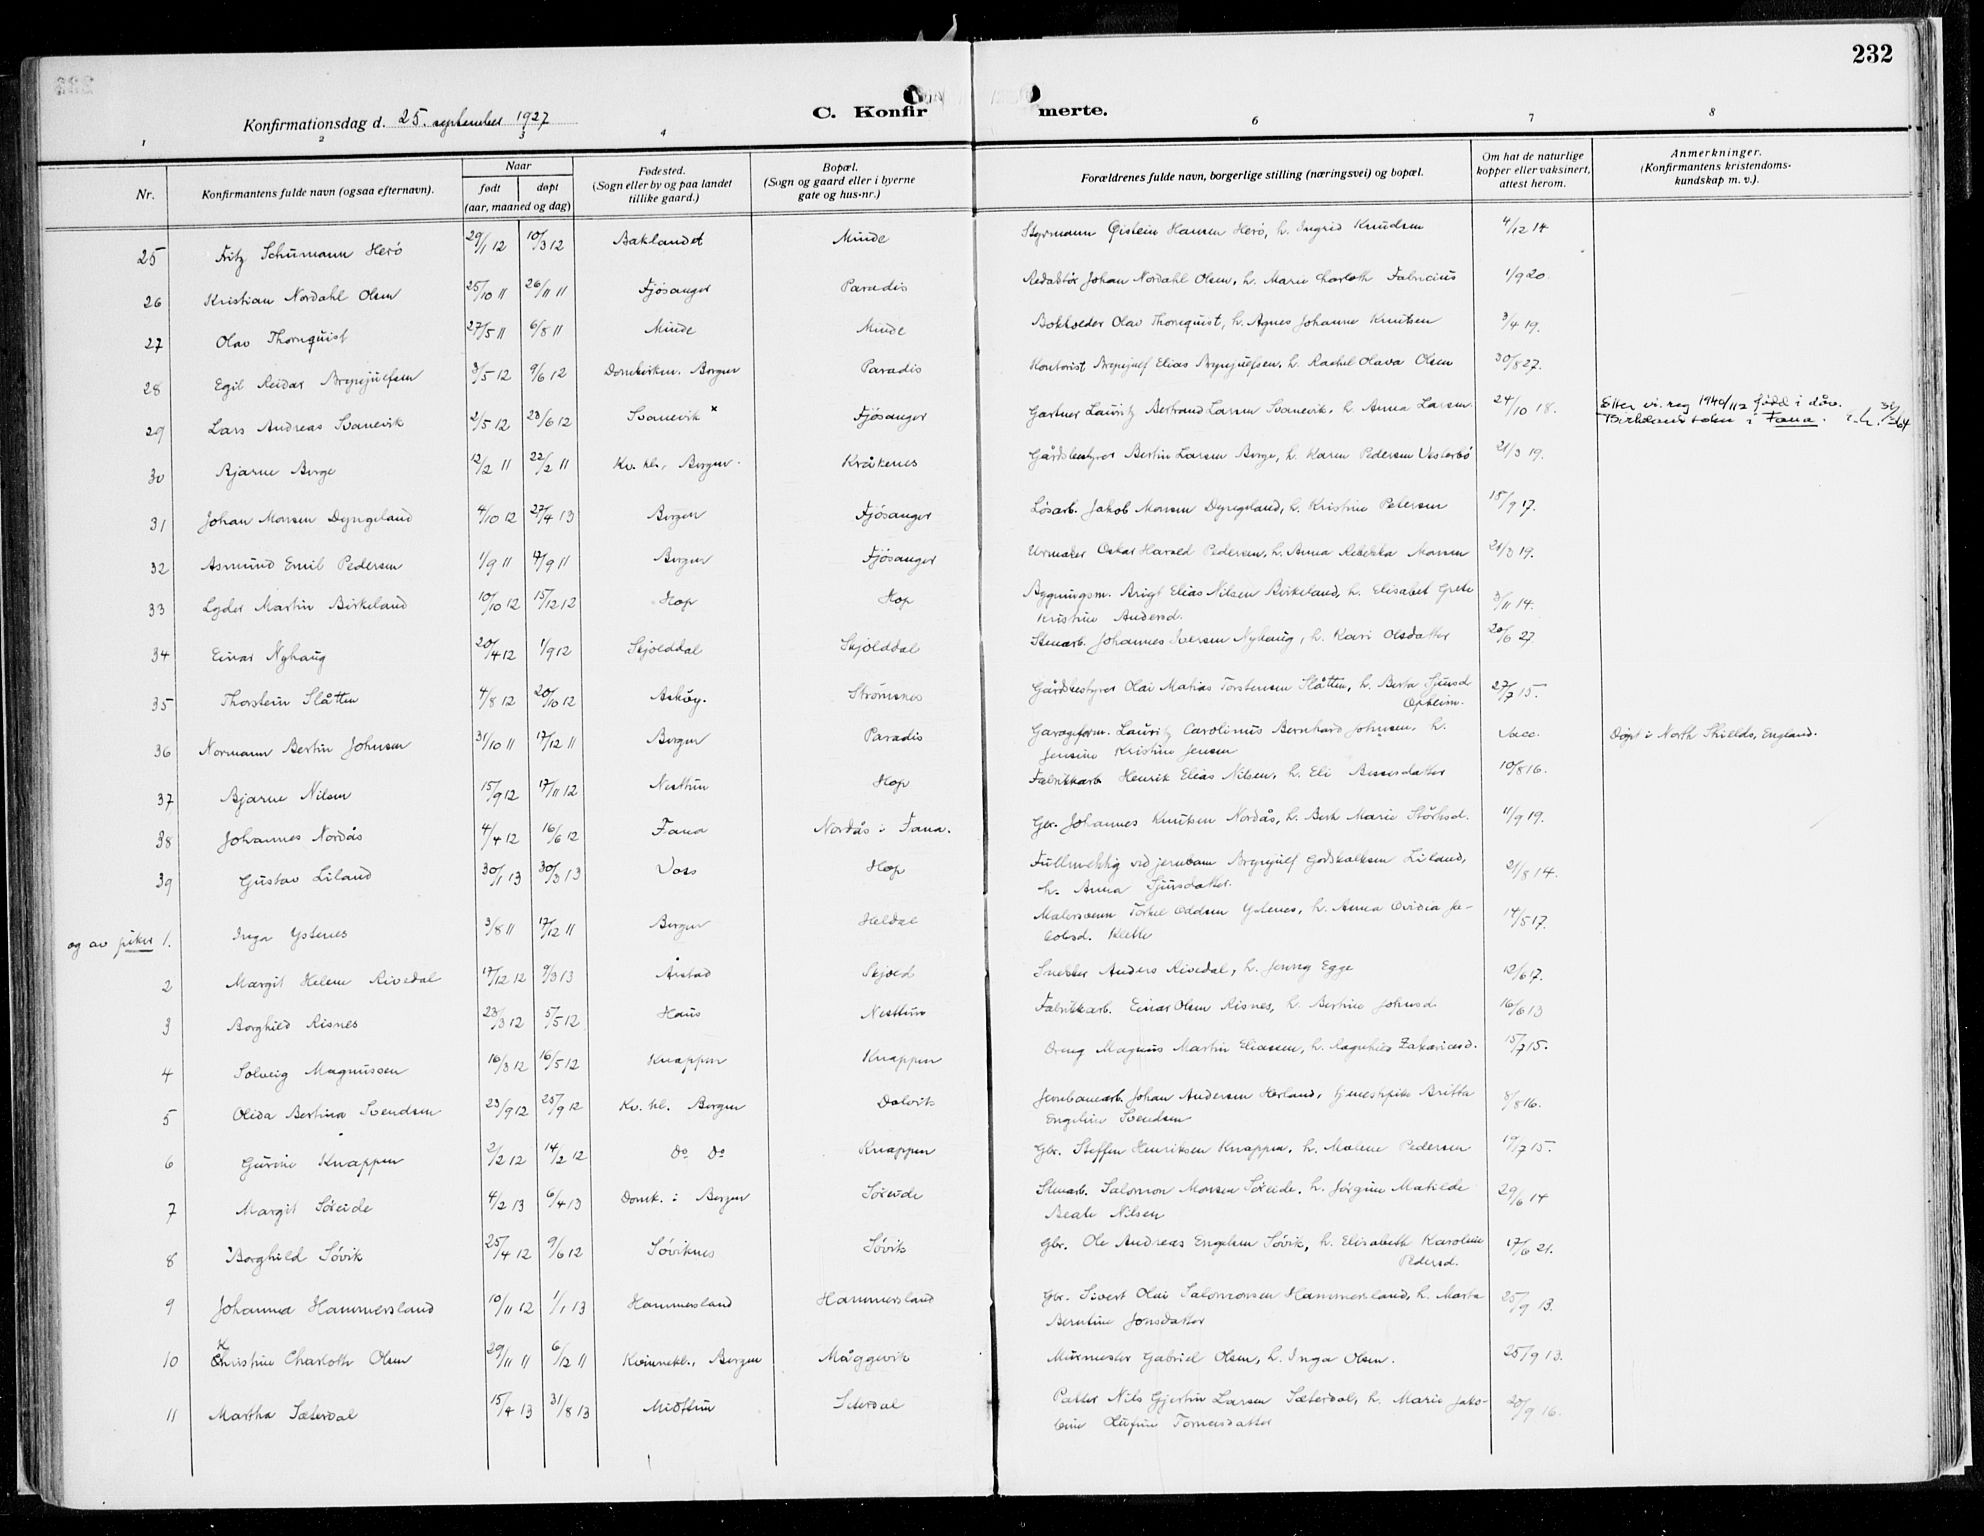 232
C. Konfirmerte.
Konfirmationsdag d. 25. september 1927
1 2 3 4 6 7 8
Nr.
Konfirmantens fulde navn (ogsaa efternavn).
Naar
født døpt
(aar, maaned og dag)
Fødested.
(Sogn eller by og paa landet
tillike gaard.)
Bopæl.
(Sogn og gaard eller i byerne
gate og hus-nr.)
Forældrenes fulde navn, borgerlige stilling (næringsvei) og bopæl.
Om hat de naturlige
kopper eller vaksinert,
attest herom.
Anmerkninger.
(Konfirmantens kristendoms-
kundskap m. v.).
25 Fritz Schumann Herö 29/1 12 10/3 12 Baklandet Minde Styrmann Øistein Hansen Herö, h. Ingrid Knudsen 4/12 14
26 Kristian Nordahl Olsen 25/10 11 26/11 11 Fjösanger Paradis Redaktör Johan Nordahl Olsen, h. Marie Charloth Fabricius 1/9 20.
27 Olav Thornquist 27/5 11 6/8 11 Minde Minde Bokholder Olav Thornquist, h. Agnes Johanne Knutsen 3/4 19.
28 Egil Reidar Brynjulfsen 3/5 12 9/6 12 Domkirken. Bergen Paradis Kontorist Brynjulf Elias Brynjulfsen, h. Rachel Olava Olsen 30/8 27.
29 Lars Andreas Svanevik 2/5 12 23/6 12 Svanevik x Fjösanger Gartner Lauritz Bertrand Larsen Svanevik, h. Anna Larsen 24/10 18. Etter vi. reg 1940/112 född i dåv.
Birkeland sokn i Fana.
30 Bjarne Berge 12/2 11 22/2 11 Kv. kl., Bergen. Kråkenes Gårdsbestyrer Bertin Larsen Berge, h. Karen Pedersen Vesterbö 21/3 19.
31 Johan Monsen Dyngeland 4/10 12 27/4 13 Bergen Fjösanger Lösarb. Jakob Monsen Dyngeland, h. Kristine Petersen 15/9 17.
32 Asmund Emil Pedersen 1/9 11 17/9 11 Bergen Fjösanger Urmaker Oskar Harald Pedersen, h. Anna Rebekka Monsen 21/3 19.
33 Lyder Martin Birkeland 10/10 12 15/12 12 Hop Hop Bygningsm. Brigt Elias Nilsen Birkeland, h. Elisabet Grete
Kristine Andersd. 3/11 14.
34 Einar Nyhaug 20/4 12 1/9 12 Skjolddal Skjolddal Stenarb. Johannes Iversen Nyhaug, h. Kari Olsdatter 20/6 27
35 Thorstein Slåtten 4/8 12 20/10 12 Asköy. Strömsnes Gårdsbestyrer Olai Matias Torstensen Slåtten, h. Berta Sjursd
Opheim. 27/7 15.
36 Normann Bertin Johnsen 31/10 11 17/12 11 Bergen Paradis Garageform. Lauritz Carolinus Bernhard Johnsen, h.
Jensine Kristine Jensen Vacc. Döpt i North Shields, England.
37 Bjarne Nilsen 15/9 12 17/11 12 Nesttun Hop Fabrikkarb. Henrik Elias Nilsen, h. Eli Bessesdatter 10/8 16.
38 Johannes Nordås 4/4 12 16/6 12 Fana Nordås i Fana. Gbr. Johannes Knutsen Nordås, h. Berte Marie Störksd. 11/9 19.
39 Gustav Liland 30/1 13 30/3 13 Voss Hop Fullmektig ved jernban Brynjulf Godskalksen Liland,
h. Anna Sjursdatter. 21/8 14.
og av piker 1. Inga Ystenes 3/8 11 17/12 11 Bergen Heldal Malersvenn Torkel Oddsen Ystenes, h. Anna Ovidia Ja-
cobsd. Klette 14/5 17.
2 Margit Helene Rivedal 17/12 12 9/3 13 Årstad Skjold Snekker Anders Rivedal, h. Jenny Egge 12/6 17.
3 Borghild Risnes 23/3 12 5/5 12 Haus Nesttun Fabrikkarb. Einar Olsen Risnes, h. Bertine Johnsd. 16/6 13
4 Solveig Magnussen 16/3 12 16/5 12 Knappen Knappen Dreng Magnus Martin Eliassen, h. Ragnhild Zakariasd. 15/7 15.
5 Olida Bertina Svendsen 23/9 12 25/9 12 Kv. kl. Bergen Dolvik Jernbanearb. Johan Andersen Herland, tjenestpike Britta
Engeline Svendsen 8/8 16.
6 Gurine Knappen 2/2 12 14/2 12 Do Do Knappen Gbr. Steffen Henriksen Knappen, h. Malene Pedersen 19/7 15.
7 Margit Söreide 4/2 13 6/4 13 Domk. i Bergen Söreide Stenarb. Salomon Monsen Söreide, h. Jörgine Matilde
Beate Nilsen 29/6 14
8 Borghild Sövik 25/4 12 9/6 12 Söviknes Sövik Gbr. Ole Andreas Engelsen Sövik, h. Elisabeth Karoline
Pedersd. 17/6 21.
9 Johanna Hammersland 10/11 12 1/1 13 Hammersland Hammersland Gbr. Sivert Olai Salomonsen Hammersland, h. Marta
Berntine Jonsdatter 25/9 13.
10 Christine Charloth Olsen 29/11 11 6/12 11 Kvinnekl., Bergen Måggevik Murmester Gabriel Olsen, h. Inga Olsen. 25/9 13.
11 Martha Sæterdal 15/4 13 31/8 13 Midttun Seterdal Pakker Nils Gjertin Larsen Sæterdal, h. Marie Jako-
bine Tornesdatter 20/9 16.